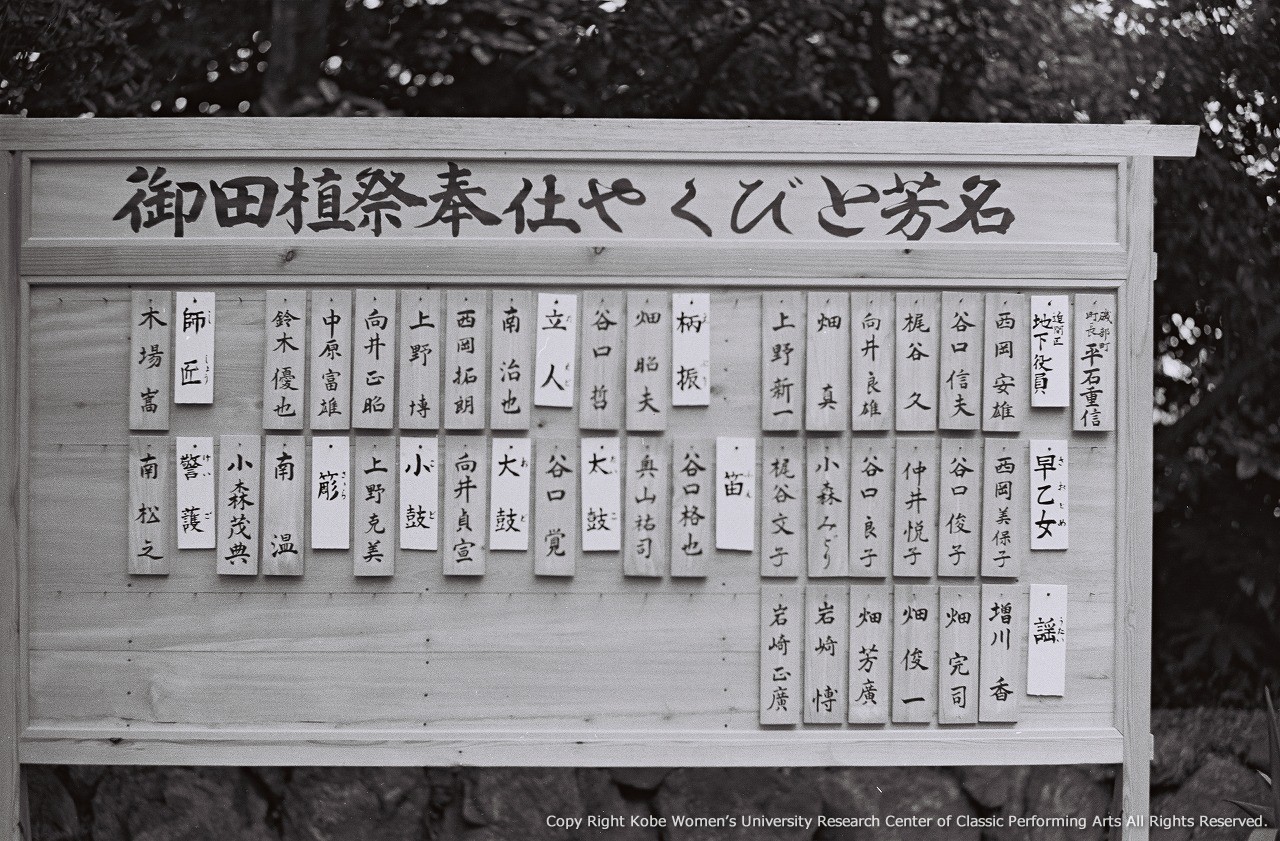 御田植祭奉仕やくびと芳名
磯部町
町長 平石重信
迫間区
地下役員
西岡安雄
谷口信夫
梶谷久
向井良雄
畑真
上野新一
柄振
畑昭夫
谷口哲
立人
南治也
西岡拓朗
上野博
向井正昭
中原富雄
鈴木優也
師匠
木場嵩
早乙女
さおとめ
西岡美保子
谷口俊子
仲井悦子
谷口良子
小森みどり
梶谷文子
笛
谷口格也
奥山祐司
太鼓
谷口覚
大鼓
向井貞宣
小鼓
上野克美
南温
小森茂典
警護
けいご
南松之
謡
うたい
増川香
畑完司
畑俊一
畑芳廣
岩崎博
岩崎正廣
Copy Right Kobe Women's University Research Center of Classic Performing Arts All Rights Reserved.